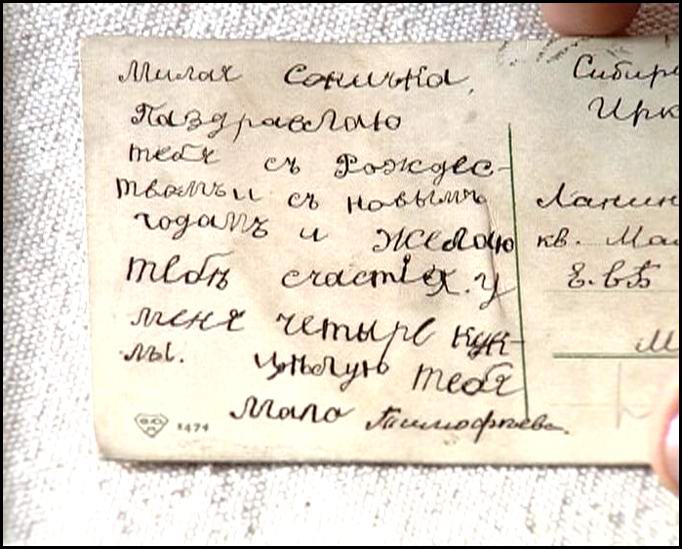 Милая Соничка,
Паздравлаю
тебя съ Рождес-
твамъ и съ новымъ
годамъ и желаю
тебѣ счастія. у
меня четыре кук-
лы. Цѣлую тебя
Мала Тимофѣева.
1474
Сибир
Ирк
Ланин
кв. Ма
Е. вБ
М